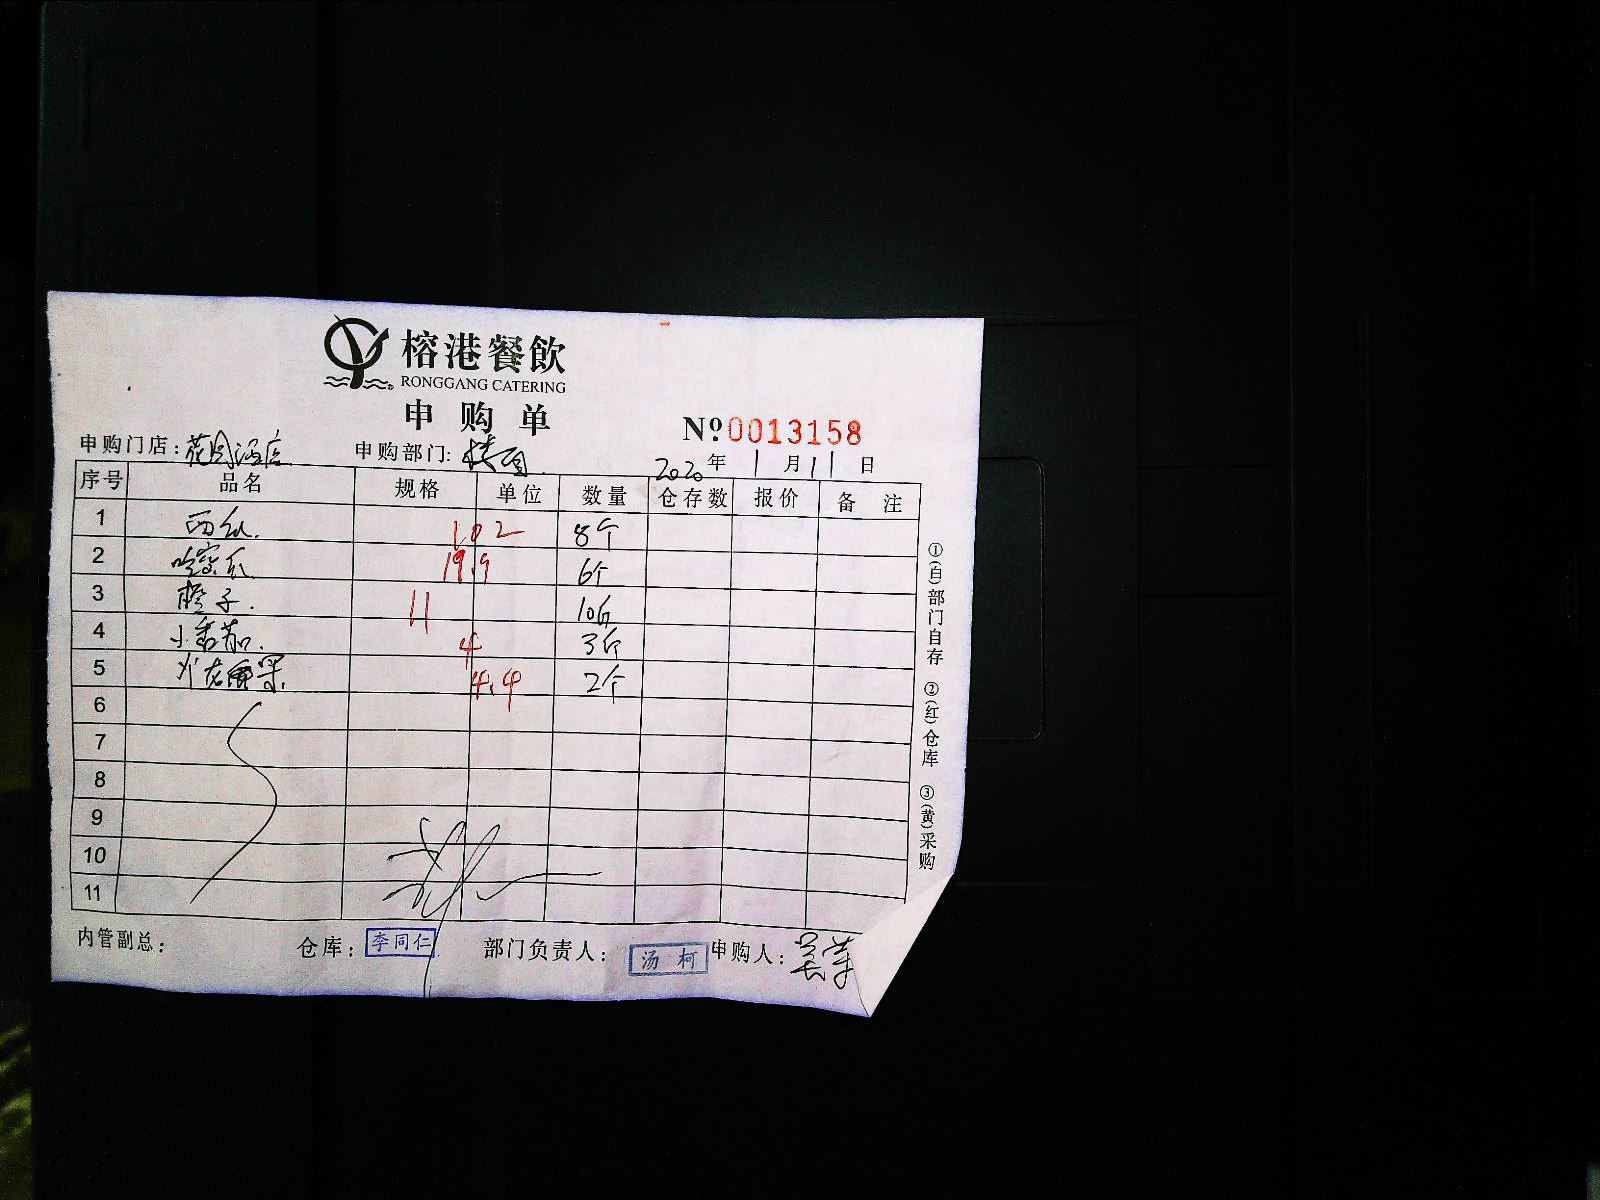 榕港餐飲
RONGGANG CATERING
申购单
№ 0013158
申购门店：花园酒店 申购部门：楼面
2020年 1月11日
序号 品名 规格 单位 数量 仓存数 报价 备注
1 西瓜. 102 8个
2 哈密瓜. 19.9 6个
3 橙子. 11 10斤
4 小番茄. 4 3斤
5 火龙果. 4.4 2个
6
7
8
9
10
11
①(白)部门自存 ②(红)仓库 ③(黄)采购
内管副总： 仓库：李同仁 部门负责人：汤柯 申购人：